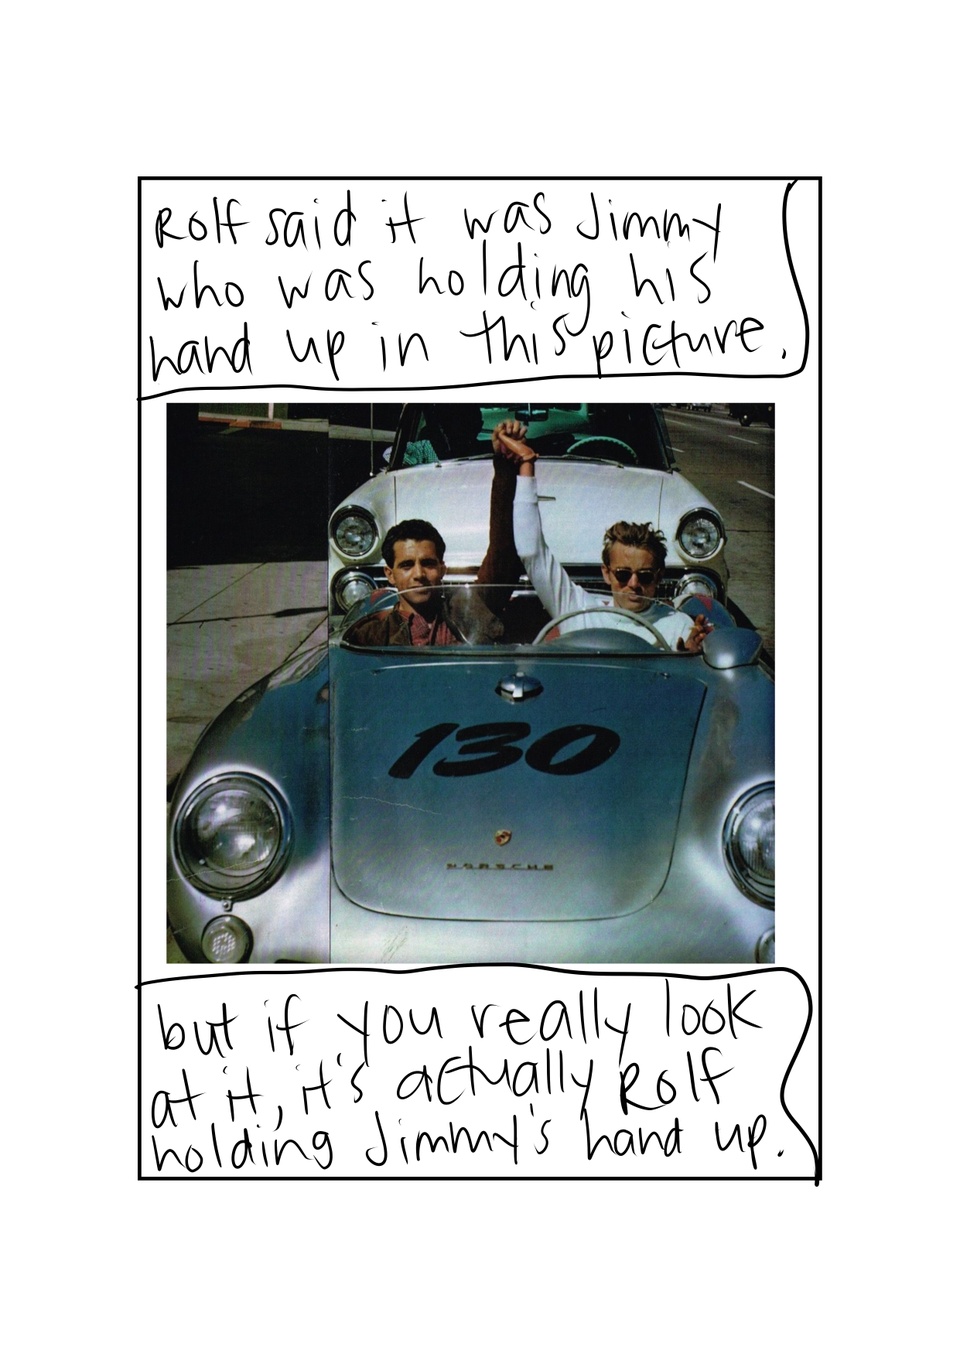 Rolf said it was Jimmy
who was holding his
hand up in this picture.
130
PORSCHE
but if you really look
at it, it's actually Rolf
holding Jimmy's hand up.